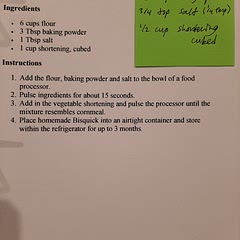 Ingredients
3/4 tsp salt
1/2 cup shortening
cubed
• 6 cups flour
• 3 Tbsp baking powder
• 1 Tbsp salt
• 1 cup shortening, cubed
Instructions
1. Add the flour, baking powder and salt to the bowl of a food
processor.
2. Pulse ingredients for about 15 seconds.
3. Add in the vegetable shortening and pulse the processor until the
mixture resembles cornmeal.
4. Place homemade Bisquick into an airtight container and store
within the refrigerator for up to 3 months.